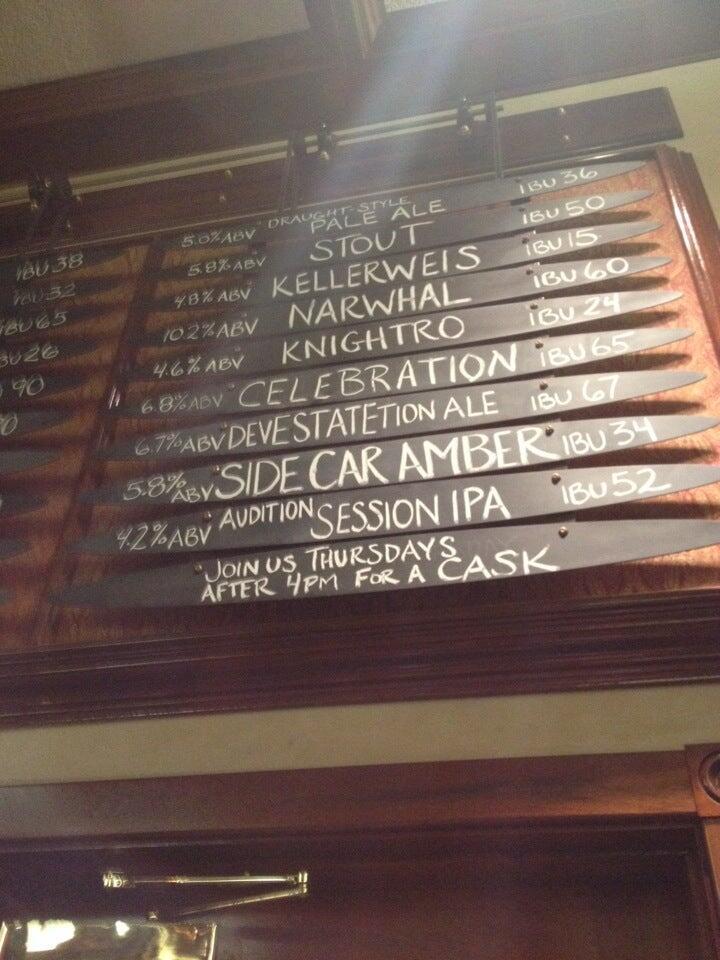 IBU 38
IBU 32
IBU 65
IBU 26
90
5.0% ABV DRAUGHT-STYLE PALE ALE IBU 36
5.8% ABV STOUT IBU 50
4.8% ABV KELLERWEIS IBU 15
10.2% ABV NARWHAL IBU 60
4.6% ABV KNIGHTRO IBU 24
6.8% ABV CELEBRATION IBU 65
6.7% ABV DEVESTATETION ALE IBU 67
5.8% ABV SIDE CAR AMBER IBU 34
4.2% ABV AUDITION SESSION IPA IBU 52
JOIN US THURSDAYS
AFTER 4PM FOR A CASK